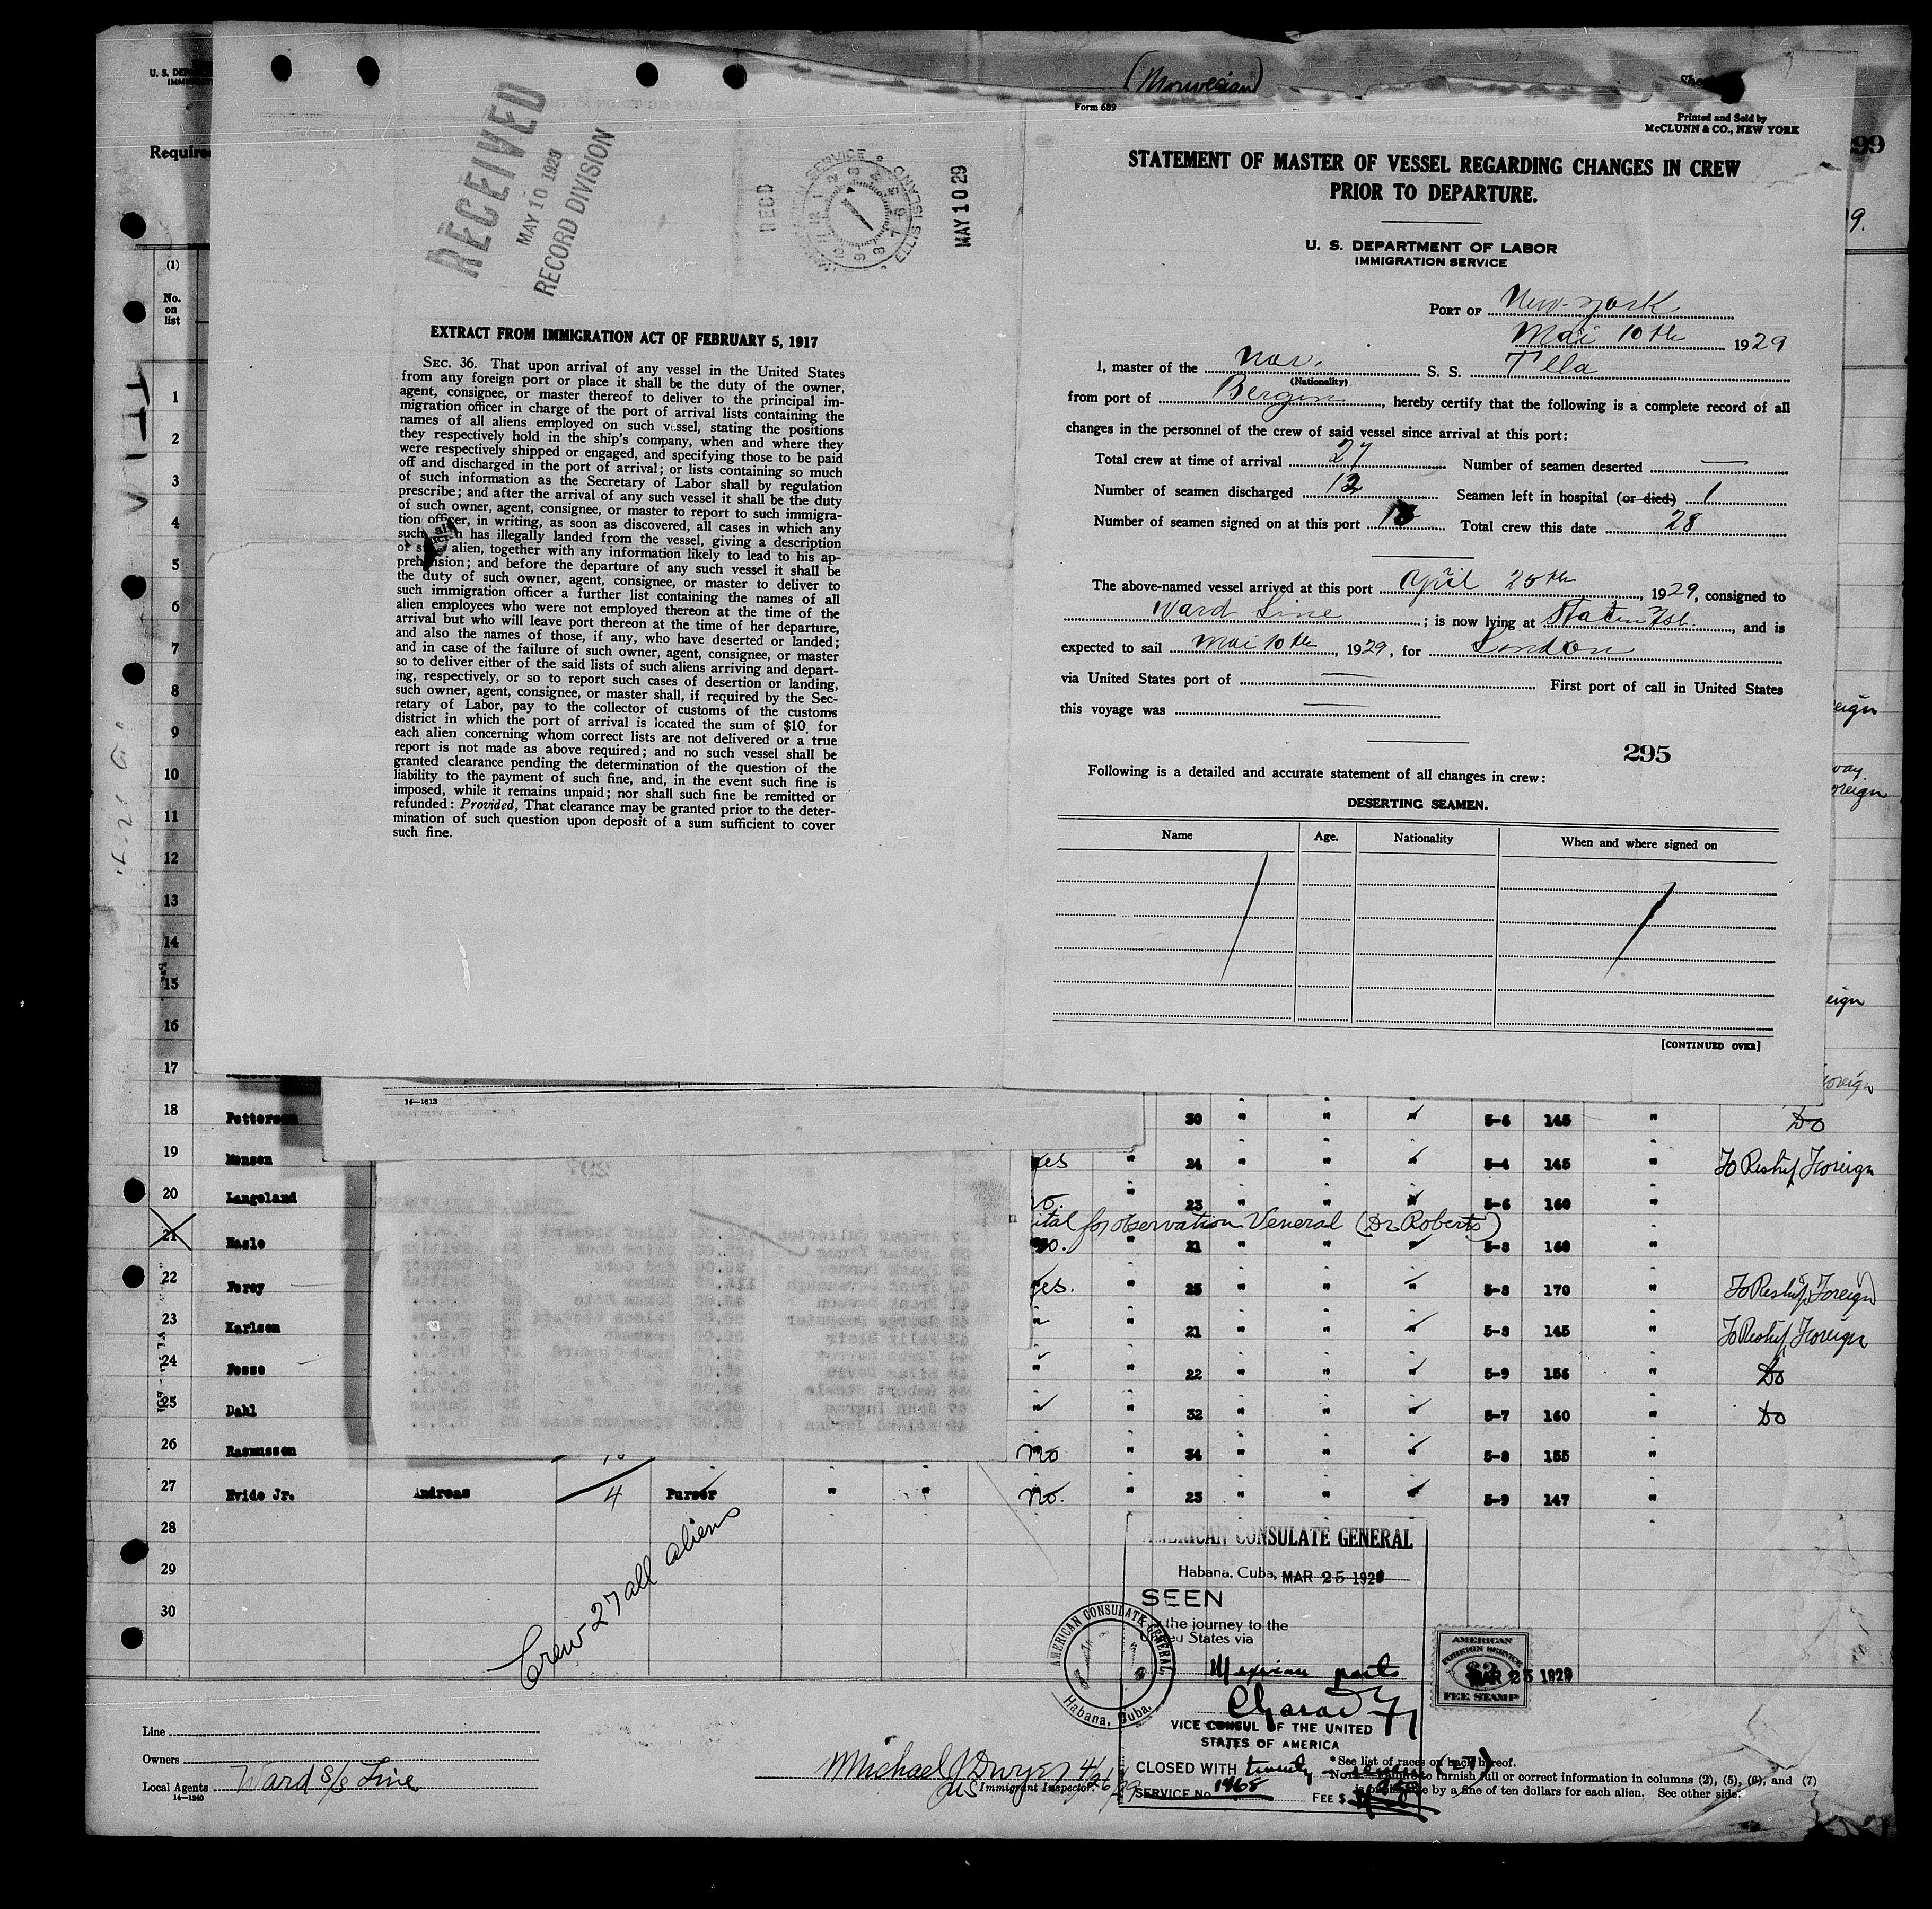 (Norwegian)
Form 689
Printed and Sold by
McCLUNN & CO., NEW YORK
STATEMENT OF MASTER OF VESSEL REGARDING CHANGES IN CREW
PRIOR TO DEPARTURE.
U. S. DEPARTMENT OF LABOR
IMMIGRATION SERVICE
PORT OF New-york
Mai 10th 1929
I, master of the nor. S. S. Tella
(Nationality)
from port of Bergen, hereby certify that the following is a complete record of all
changes in the personnel of the crew of said vessel since arrival at this port:
Total crew at time of arrival 27 Number of seamen deserted —
Number of seamen discharged 12 Seamen left in hospital (or died) 1
Number of seamen signed on at this port Total crew this date 28
The above-named vessel arrived at this port April 20th, 1929, consigned to
Ward Line; is now lying at Staten Isl., and is
expected to sail Mai 10th, 1929, for London
via United States port of — First port of call in United States
this voyage was —
295
Following is a detailed and accurate statement of all changes in crew:
DESERTING SEAMEN.
Name Age. Nationality When and where signed on
[CONTINUED OVER]
RECEIVED
MAY 10 1929
RECORD DIVISION
RECD
IMMIGRATION SERVICE
ELLIS ISLAND
MAY 10 29
EXTRACT FROM IMMIGRATION ACT OF FEBRUARY 5, 1917
SEC. 36. That upon arrival of any vessel in the United States
from any foreign port or place it shall be the duty of the owner,
agent, consignee, or master thereof to deliver to the principal im-
migration officer in charge of the port of arrival lists containing the
names of all aliens employed on such vessel, stating the positions
they respectively hold in the ship's company, when and where they
were respectively shipped or engaged, and specifying those to be paid
off and discharged in the port of arrival; or lists containing so much
of such information as the Secretary of Labor shall by regulation
prescribe; and after the arrival of any such vessel it shall be the duty
of such owner, agent, consignee, or master to report to such immigra-
tion officer, in writing, as soon as discovered, all cases in which any
such has illegally landed from the vessel, giving a description
of such alien, together with any information likely to lead to his ap-
prehension; and before the departure of any such vessel it shall be
the duty of such owner, agent, consignee, or master to deliver to
such immigration officer a further list containing the names of all
alien employees who were not employed thereon at the time of the
arrival but who will leave port thereon at the time of her departure,
and also the names of those, if any, who have deserted or landed;
and in case of the failure of such owner, agent, consignee, or master
so to deliver either of the said lists of such aliens arriving and depart-
ing, respectively, or so to report such cases of desertion or landing,
such owner, agent, consignee, or master shall, if required by the Sec-
retary of Labor, pay to the collector of customs of the customs
district in which the port of arrival is located the sum of $10 for
each alien concerning whom correct lists are not delivered or a true
report is not made as above required; and no such vessel shall be
granted clearance pending the determination of the question of the
liability to the payment of such fine, and, in the event such fine is
imposed, while it remains unpaid; nor shall such fine be remitted or
refunded: Provided, That clearance may be granted prior to the deter-
mination of such question upon deposit of a sum sufficient to cover
such fine.
(1)
No.
on
list
1
2
3
4
5
6
7
8
9
10
11
12
13
14
15
16
17
14—1613
18 Petterson 30 " " " 5-6 145 " Do
19 Monsen yes " 24 " " " 5-4 145 " To Reship Foreign
20 Langeland no. " 23 " " " 5-6 160 "
ital for observation Veneral (Dr Roberts)
21 Hasle no. " 21 " " " 5-8 160 "
22 Feroy yes. " 25 " " " 5-8 170 " To Reship Foreign
23 Karlsen " " 21 " " " 5-8 145 " To Reship Foreign
24 Fosse " " 22 " " " 5-9 156 " Do
25 Dahl " " 32 " " " 5-7 160 " Do
26 Rasmussen no " 34 " " " 5-8 155 "
27 Hvide Jr. Andreas 4 Purser " " no. " 23 " " " 5-9 147 "
28
29
30
Crew 27 all aliens
AMERICAN CONSULATE GENERAL
Habana, Cuba, MAR 25 1929
SEEN
the journey to the
United States via
Mexican ports
VICE CONSUL OF THE UNITED
STATES OF AMERICA
CLOSED WITH twenty-seven (27)
SERVICE No. 1468 FEE $
AMERICAN CONSULATE GENERAL
Habana, Cuba.
AMERICAN
FOREIGN SERVICE
$2
MAR 25 1929
FEE STAMP
Line
Owners
Local Agents Ward S/S Line
14—1240
Michael J Dwyer 4/26/29
US Immigrant Inspector.
*See list of races on back hereof.
to furnish full or correct information in columns (2), (5), (6), and (7)
by a fine of ten dollars for each alien. See other side.